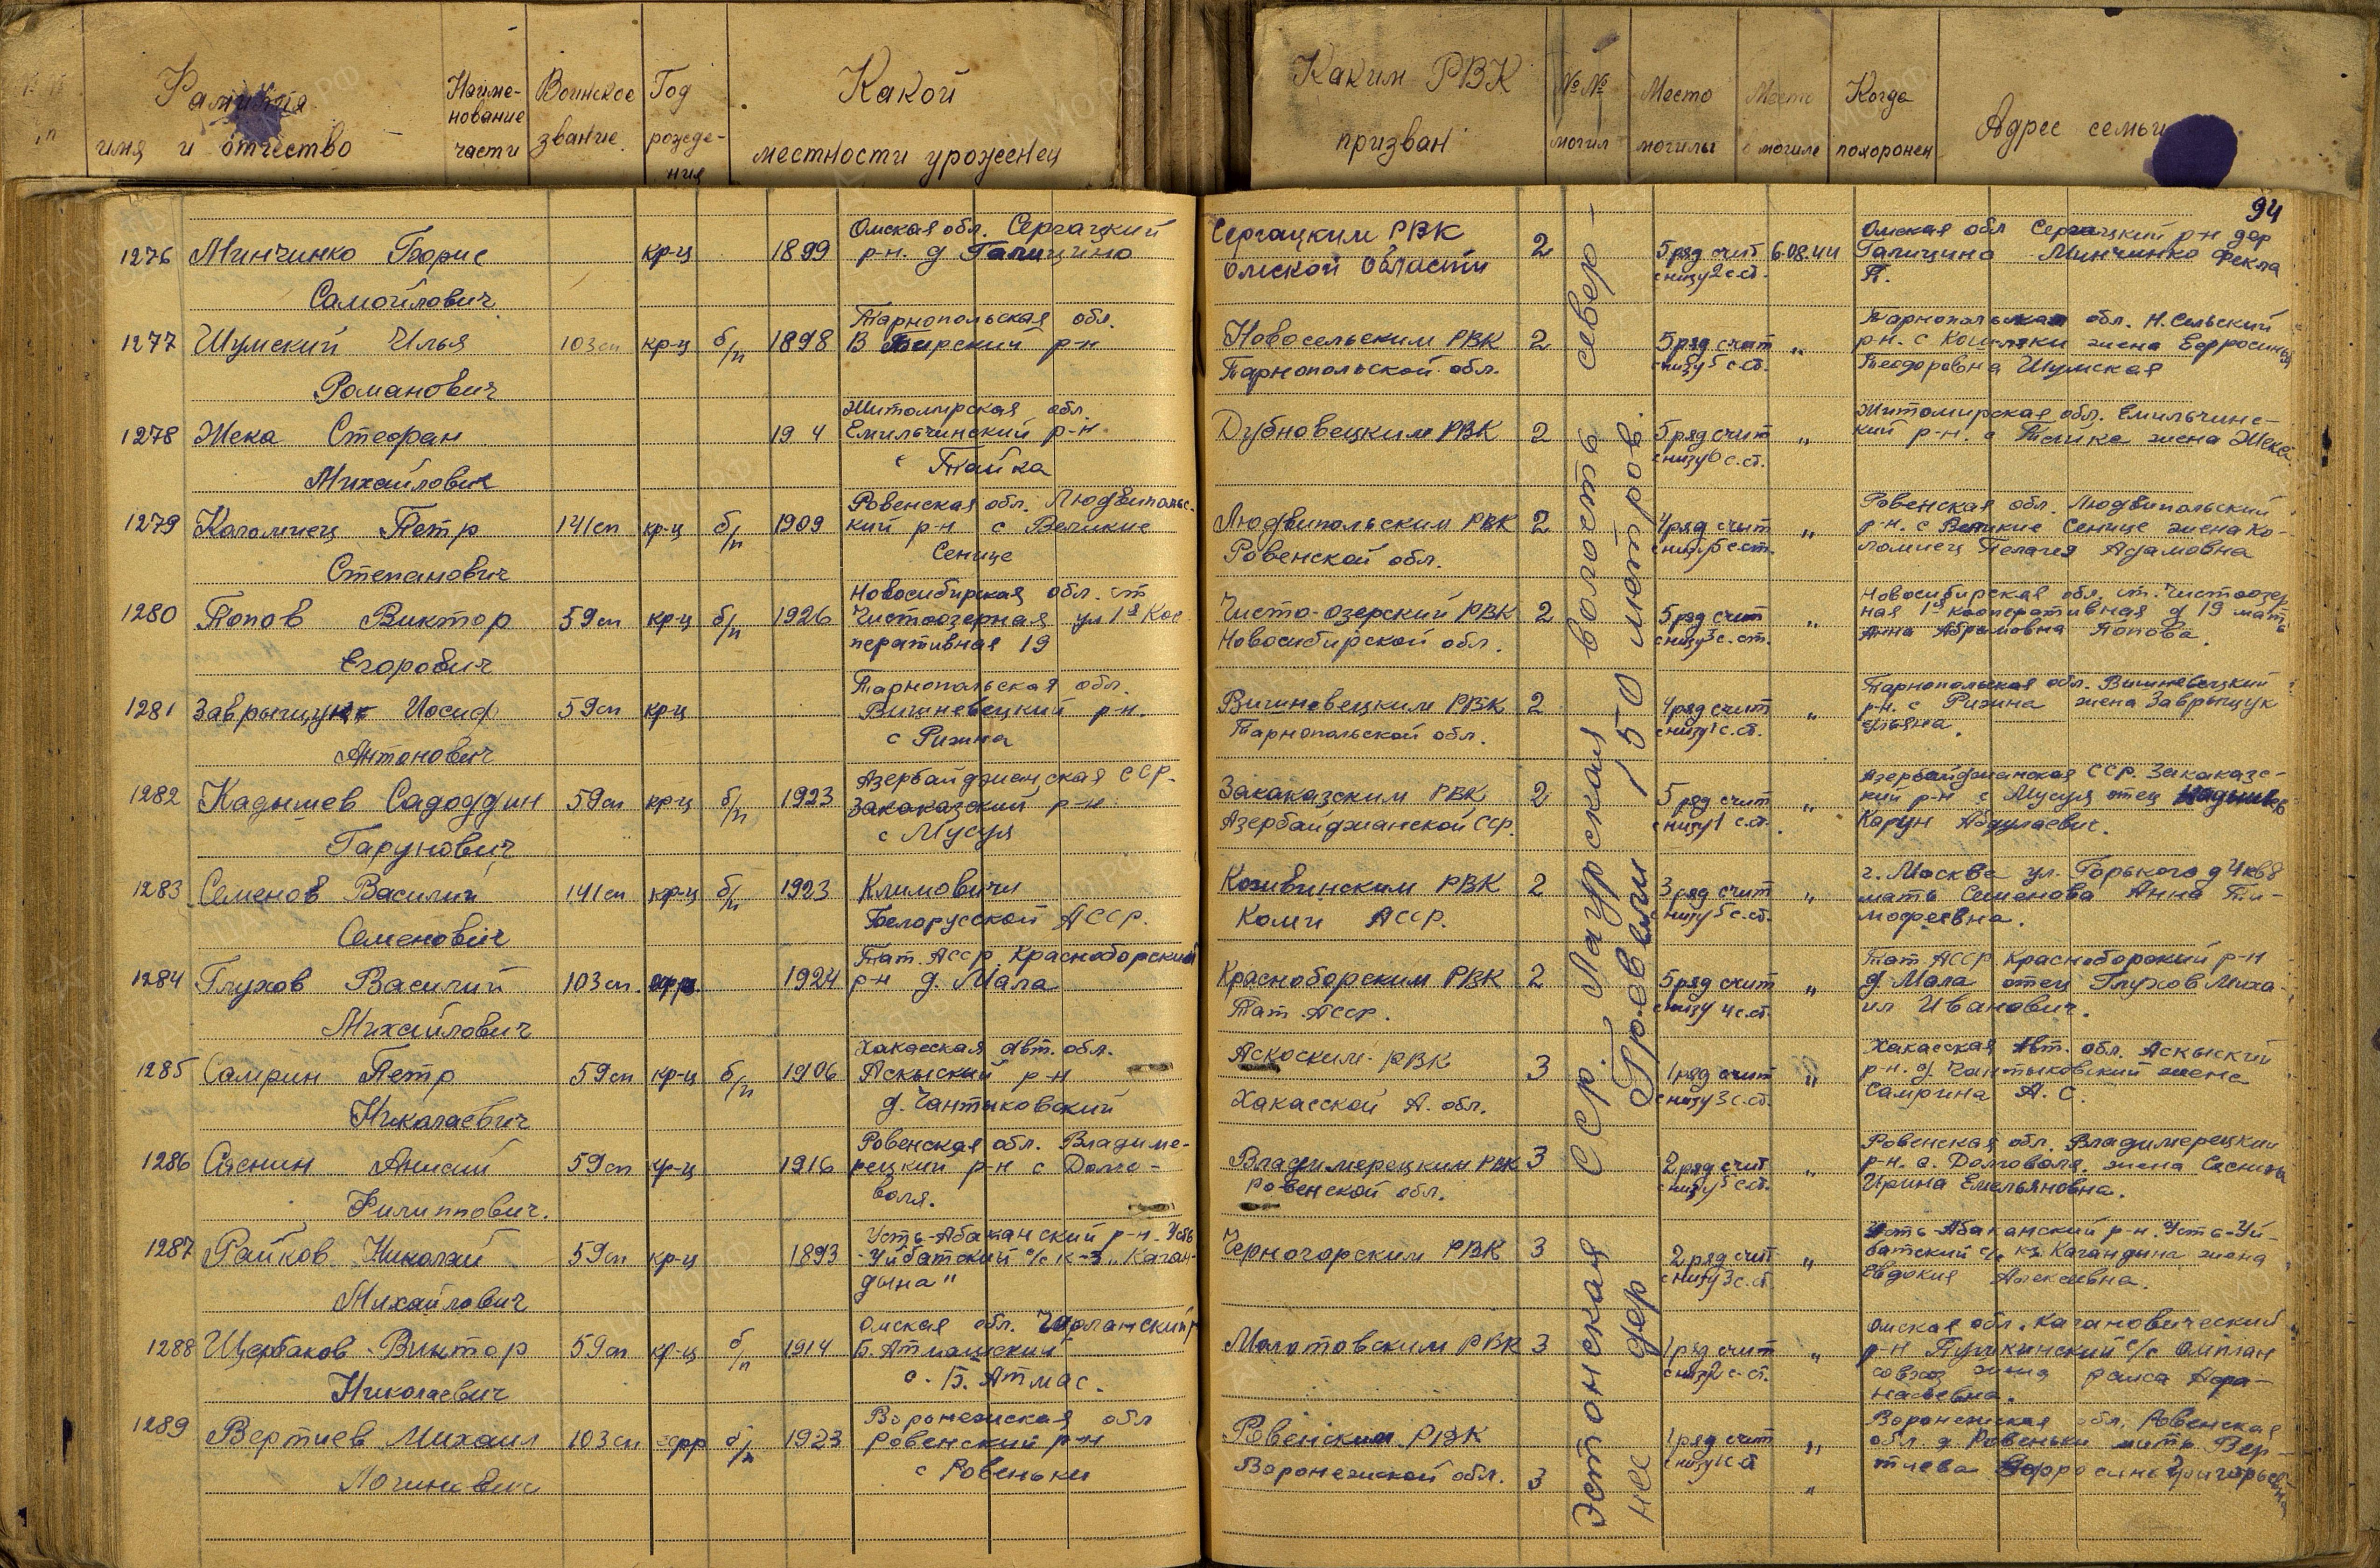 Фамилия
имя и отчество
Наиме-
нование
части
Воинское
звание
Год
рожде-
ния
Какой
местности уроженец
Каким РВК
призван
№ №
могил
Место
могилы
Место
в могиле
Когда
похоронен
Адрес семьи
94
1276 Минчинко Борис кр-ц 1899
Самойлович
Омская обл. Сергацкий
р-н. д Галицино
Сергацким РВК
Омской области
2
5 ряд счит
снизу 2 с.ст.
6.08.44
Омская обл Сергацкий р-н дер
Галицино Минчинко Фекла
П.
1277 Шумский Илья 103 сп кр-ц б/п 1898
Романович
Тарнопольская обл.
р-н
Новосельским РВК
Тарнопольской обл.
2
5 ряд счит
снизу 5 с.ст.
"
Тарнопольская обл. Н. Сельский
р-н. с жена Ефросинья
Теодоровна Шумская
1278 Жека Стефан 19 4
Михайлович
Житомирская обл.
Емильчинский р-н
с Тайка
Дубновецким РВК
2
5 ряд счит
снизу 6 с.ст.
"
Житомирская обл. Емильчинс-
кий р-н. с Тайка жена Жека
1279 Коломиец Петр 141 сп кр-ц б/п 1909
Степанович
Ровенская обл. Людвипольс-
кий р-н с Великие
Сенице
Людвипольским РВК
Ровенской обл.
2
4 ряд счит
снизу 5 с.ст.
"
Ровенская обл. Людвипольский
р-н. с Великие Сенице жена Ко-
ломиец Пелагея Адамовна
1280 Попов Виктор 59 сп кр-ц б/п 1926
Егорович
Новосибирская обл. ст
Чистоозерная ул 1я Коо
перативная 19
Чисто-озерский РВК
Новосибирской обл.
2
5 ряд счит
снизу 3 с.ст.
"
Новосибирская обл. ст. Чистоозер
ная 1я кооперативная д 19 мать
Анна Абрамовна Попова.
1281 Заврыщук Иосиф 59 сп кр-ц
Антонович
Тарнопольская обл.
Вишневецкий р-н.
с Рижна
Вишневецким РВК
Тарнопольской обл.
2
4 ряд счит
снизу 1 с.ст.
"
Тарнопольская обл. Вишневецкий
р-н. с Рижна жена Заврыщук
Ульяна.
1282 Кадышев Садоддин 59 сп кр-ц б/п 1923
Гарунович
Азербайджанская ССР.
Закаказский р-н
с Мусуя
Закаказским РВК
Азербайджанской ССР.
2
5 ряд счит
снизу 1 с.ст.
"
Азербайджанская ССР. Закаказс-
кий р-н с Мусуя отец Кадышев
Карун Абдулаевич.
1283 Семенов Василий 141 сп кр-ц б/п 1923
Семенович
Климовичи
Белорусской АССР.
Кожвинским РВК
Коми АССР.
2
3 ряд счит
снизу 5 с.ст.
"
г. Москва ул. Горького д 4 кв 8
мать Семенова Анна Ти-
мофеевна.
1284 Глухов Василий 103 сп. 1924
Михайлович
Тат. АССР. Красноборский
р-н д. Мала
Красноборским РВК
Тат. АССР.
2
5 ряд счит
снизу 4 с.ст.
"
Тат. АССР Красноборский р-н
д. Мала отец Глухов Миха-
ил Иванович.
1285 Самрин Петр 59 сп кр-ц б/п 1906
Николаевич
Хакасская Авт. обл.
Аскысский р-н
д. Чантыковский
Аскоским РВК
Хакасской А. обл.
3
1 ряд счит
снизу 3 с.ст.
"
Хакасская Авт. обл. Аскыский
р-н. д. Чантыковский жена
Самрина А. С.
1286 Сяснин Анисий 59 сп кр-ц 1916
Филиппович.
Ровенская обл. Владиме-
рецкий р-н с Долго-
воля.
Владимерецким РВК
Ровенской обл.
3
2 ряд счит
снизу 5 с.ст.
"
Ровенская обл. Владимерецкий
р-н. с. Долговоля. жена Сяснина
Ирина Емельяновна.
1287 Райков Николай 59 сп кр-ц 1893
Михайлович
Усть-Абаканский р-н. Усть
-Уйбатский с/с к-з „Каган-
дына"
Черногорским РВК
3
2 ряд счит
снизу 3 с.ст.
"
Усть-Абаканский р-н. Усть-Уй-
батский с/с к-з Кагандына жена
Евдокия Алексевна.
1288 Щербаков Виктор 59 сп кр-ц б/п 1914
Николаевич
Омская обл.
Б. Атмашский
с. Б. Атмас.
Молотовским РВК
3
1 ряд счит
снизу 2 с.ст.
"
Омская обл. Кагановический
р-н Пушкинский с/с
совхоз жена раиса Афа-
насьевна.
1289 Вертиев Михаил 103 сп ефр б/п 1923
Воронежская обл
Ровенский р-н
с Ровеньки
Ровенским РВК
Воронежской обл.
3
1 ряд счит
"
Воронежская обл. Ровенская
обл. д Ровеньки мать Вер-
тиева Григорьевна
Эстонская ССР. Лаурская волость северо-
нее дер метров.